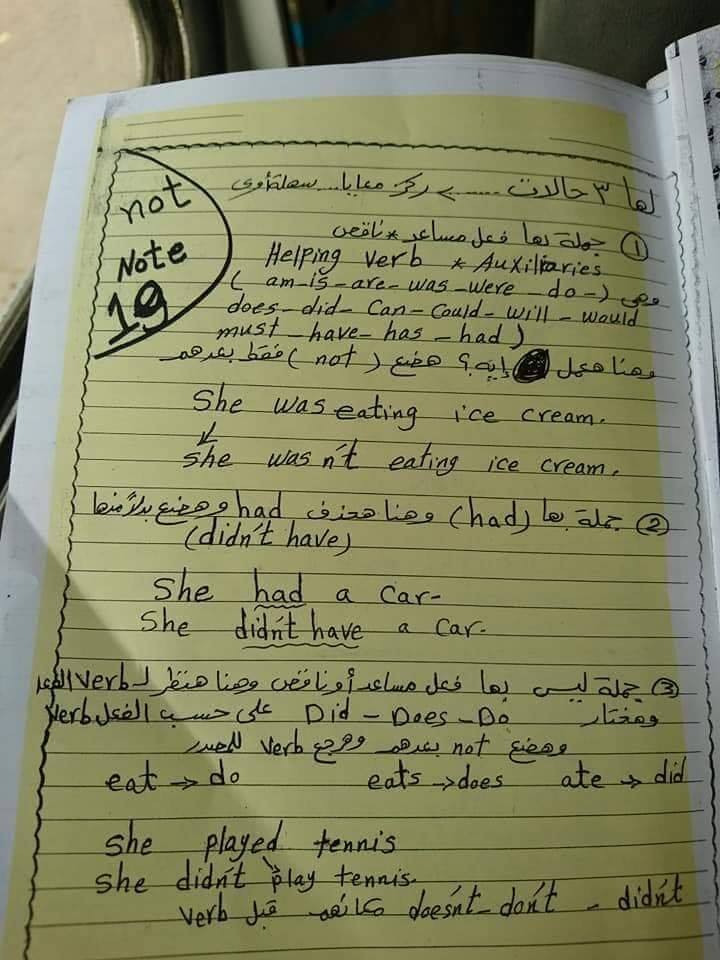 not
Note
19
لها ٣ حالات ...... > ركز معايا... سهلة أوى
① جملة بها فعل مساعد * ناقص
Helping verb * Auxiliaries
وهى ( am-is-are-was-were-do-
does-did-Can-Could-will-would
must-have-has-had )
وهنا هعمل إيه؟ هضع ( not ) فقط بعدهم
She was eating ice cream.
she wasn't eating ice cream.
② جملة بها (had) وهنا هحذف had وهضع بدلاً منها
(didn't have)
She had a car-
She didn't have a car-
③ جملة ليس بها فعل مساعد أو ناقص وهنا هنظر لـ verb
وهختار Did-Does-Do على حسب الفعل verb
وهضع not بعدهم وهرجع verb للمصدر
eat → do eats → does ate → did
she played tennis
she didn't play tennis.
didn't - don't - doesn't مكانهم قبل verb